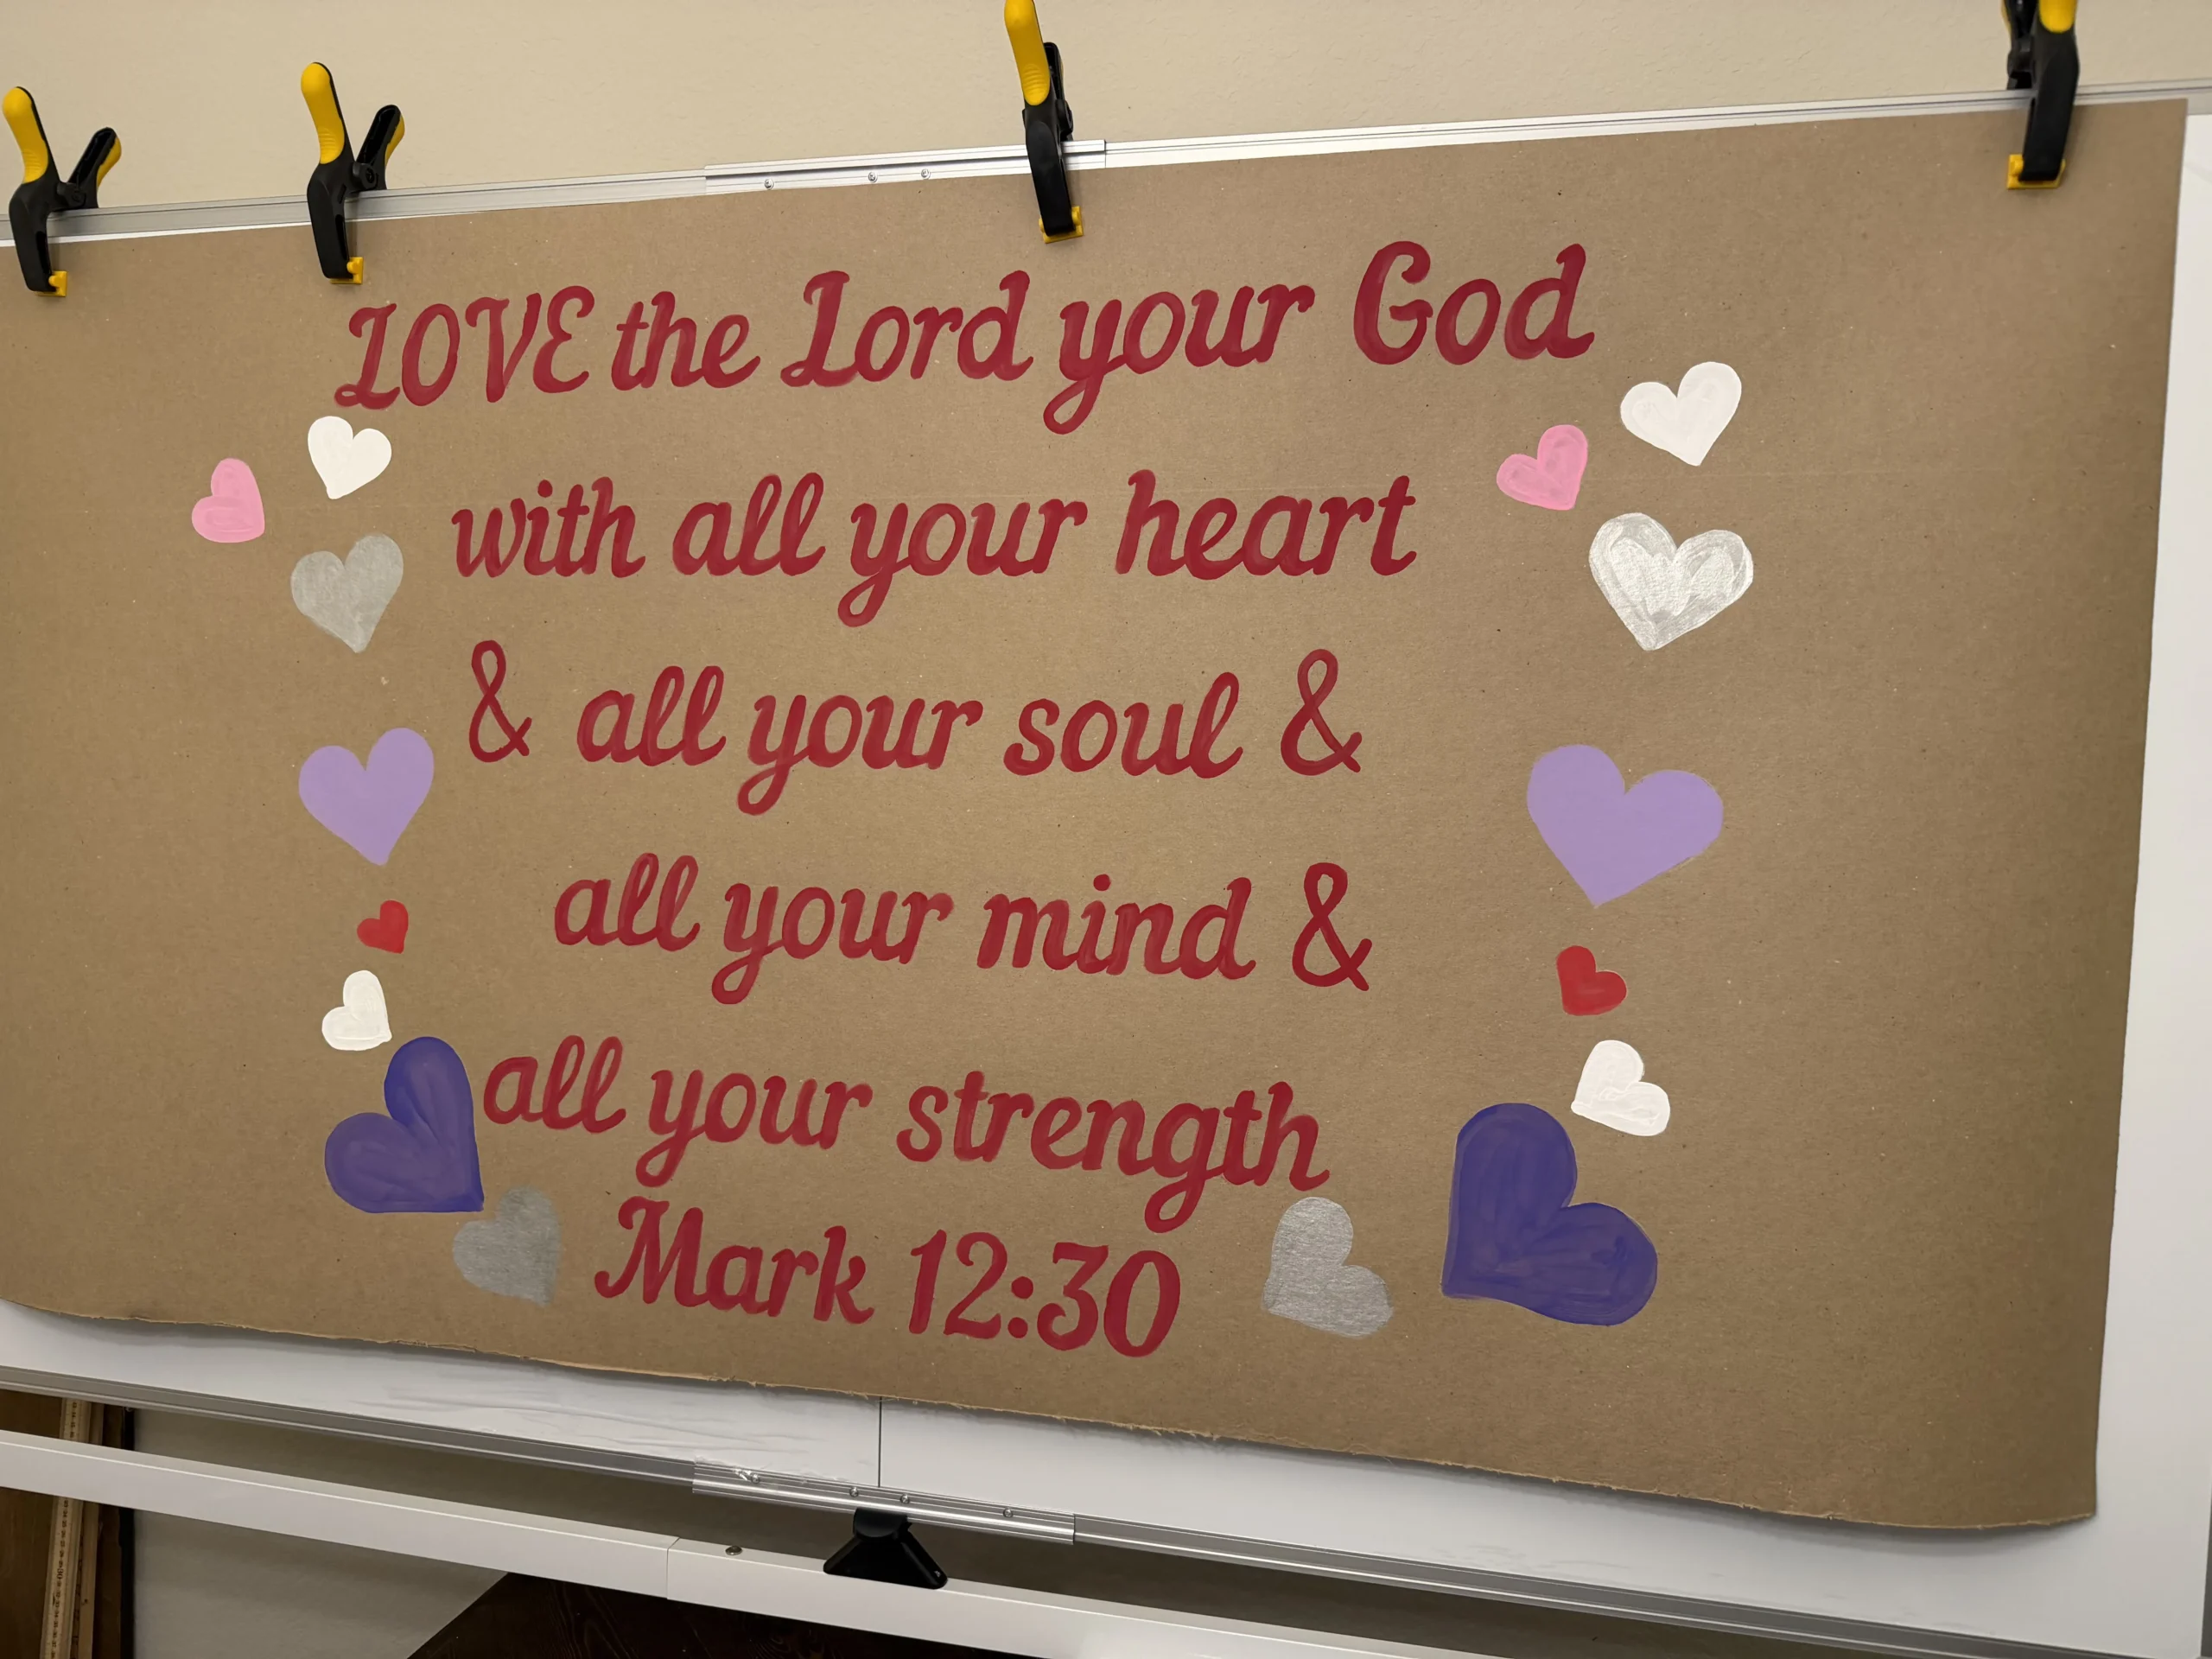 LOVE the Lord your God
with all your heart
& all your soul &
all your mind &
all your strength
Mark 12:30